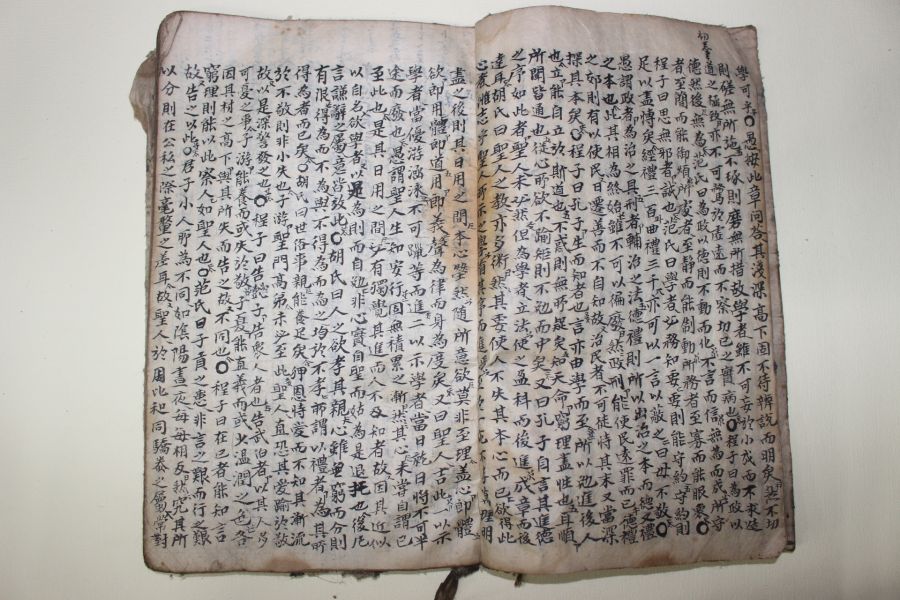 學可乎愚按此章問答其淺深高下固不待辨說而明矣然不切
則磋無所施不琢則磨無所措故學者雖不可安於小成而不求造
道之極致亦不可騖於虛遠而不察切己之實病也○程子曰為政以
德然後無為范氏曰為政以德則不動而化不言而信無為而成所守
者至簡而能御煩所處者至靜而能制動所務者至寡而能服衆○
程子曰思無邪者誠也范氏曰學者必務知要知要則能守約守約則
足以盡博矣經禮三百曲禮三千亦可以一言以蔽之曰毋不敬○
愚謂政者為治之具刑者輔治之法德禮則所以出治之本而德又禮
之本也此其相為終始雖不可以偏廢然政刑能使民遠罪而已德禮
之效則有以使民日遷善而不自知故治民者不可徒恃其末又當深
探其本矣○程子曰孔子生而知者也言亦由學而至所以勉進後人
也立能自立於斯道也不惑則無所疑矣知天命窮理盡性也耳順
所聞皆通也從心所欲不踰矩則不勉而中矣又曰孔子自言其進德
之序如此者聖人未必然但為學者立法使之盈科而後進成章而後
達耳胡氏曰聖人之教亦多術然其要使人不失其本心而已欲得此
心者惟志乎聖人所示之學循其序而進焉 理明
盡之後則其日用之間本心瑩然隨所意欲莫非至理盖心即體
欲即用體即道用即義聲為律而身為度矣又曰聖人言此一以示
學者當優游涵泳不可躐等而進二以示學者當日就月將不可半
途而廢也愚謂聖人生知安行固無積累之漸然其心未嘗自謂已
至此也是其日用之間必有獨覺其進而人不及知者故因其近似
以自名欲學者以是為則而自勉非心實自聖而姑為是退托也後凡
言謙辭之屬意皆放此○胡氏曰人之欲孝其親心雖無窮而分則
有限得為而不為與不得為而為之均於不孝所謂以禮者為其所
得為者而已矣○胡氏曰世俗事親能養足矣狎恩恃愛而不知其漸流
於不敬則非小失也子游聖門高弟未必至此聖人直恐其愛踰於敬
故以是深警發之也○程子曰告懿子告衆人者也告武伯者以其人多
可憂之事子游能養而或失於敬子夏能直義而或少溫潤之色各
因其材之高下與其所失而告之故不同也○程子曰在己者能知言
窮理則能以此察人如聖人也○范氏曰子貢之患非言之艱而行之艱
故告之以此○君子小人所為不同如陰陽晝夜每每相反然究其所
以分則在公私之際毫釐之差耳故聖人於周比和同驕泰之屬常對